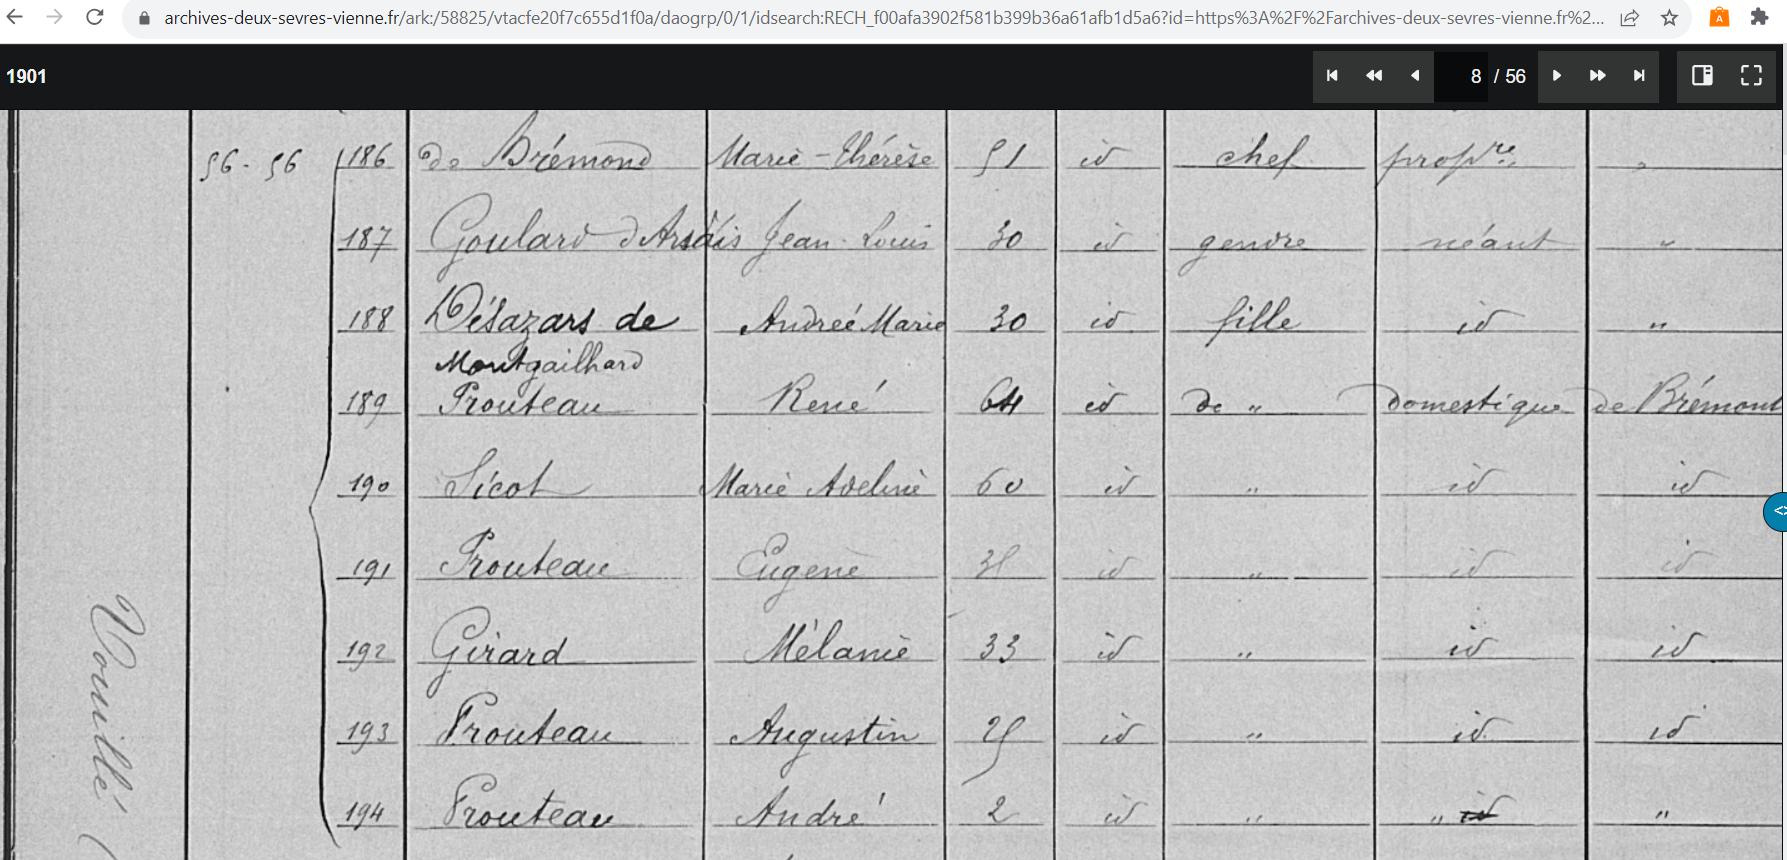 archives-deux-sevres-vienne.fr/ark:/58825/vtacfe20f7c655d1f0a/daogrp/0/1/idsearch:RECH_f00afa3902f581b399b36a61afb1d5a6?id=https%3A%2F%2Farchives-deux-sevres-vienne.fr%2...
1901 8 / 56
56 - 56 186 de Brémond Marie-Thérèse 51 id chef propre "
187 Goulard d'Arsais Jean-Louis 30 id gendre néant "
188 Désazars de Andreé Marie 30 id fille id "
Montgailhard
189 Prouteau René 64 id de " domestique de Brémond
190 Sicot Marie Adeline 60 id " id id
191 Prouteau Eugène id " id id
192 Girard Mélanie 33 id " id id
193 Prouteau Augustin 25 id " id id
194 Prouteau André 2 id " " id "
Vouillé (